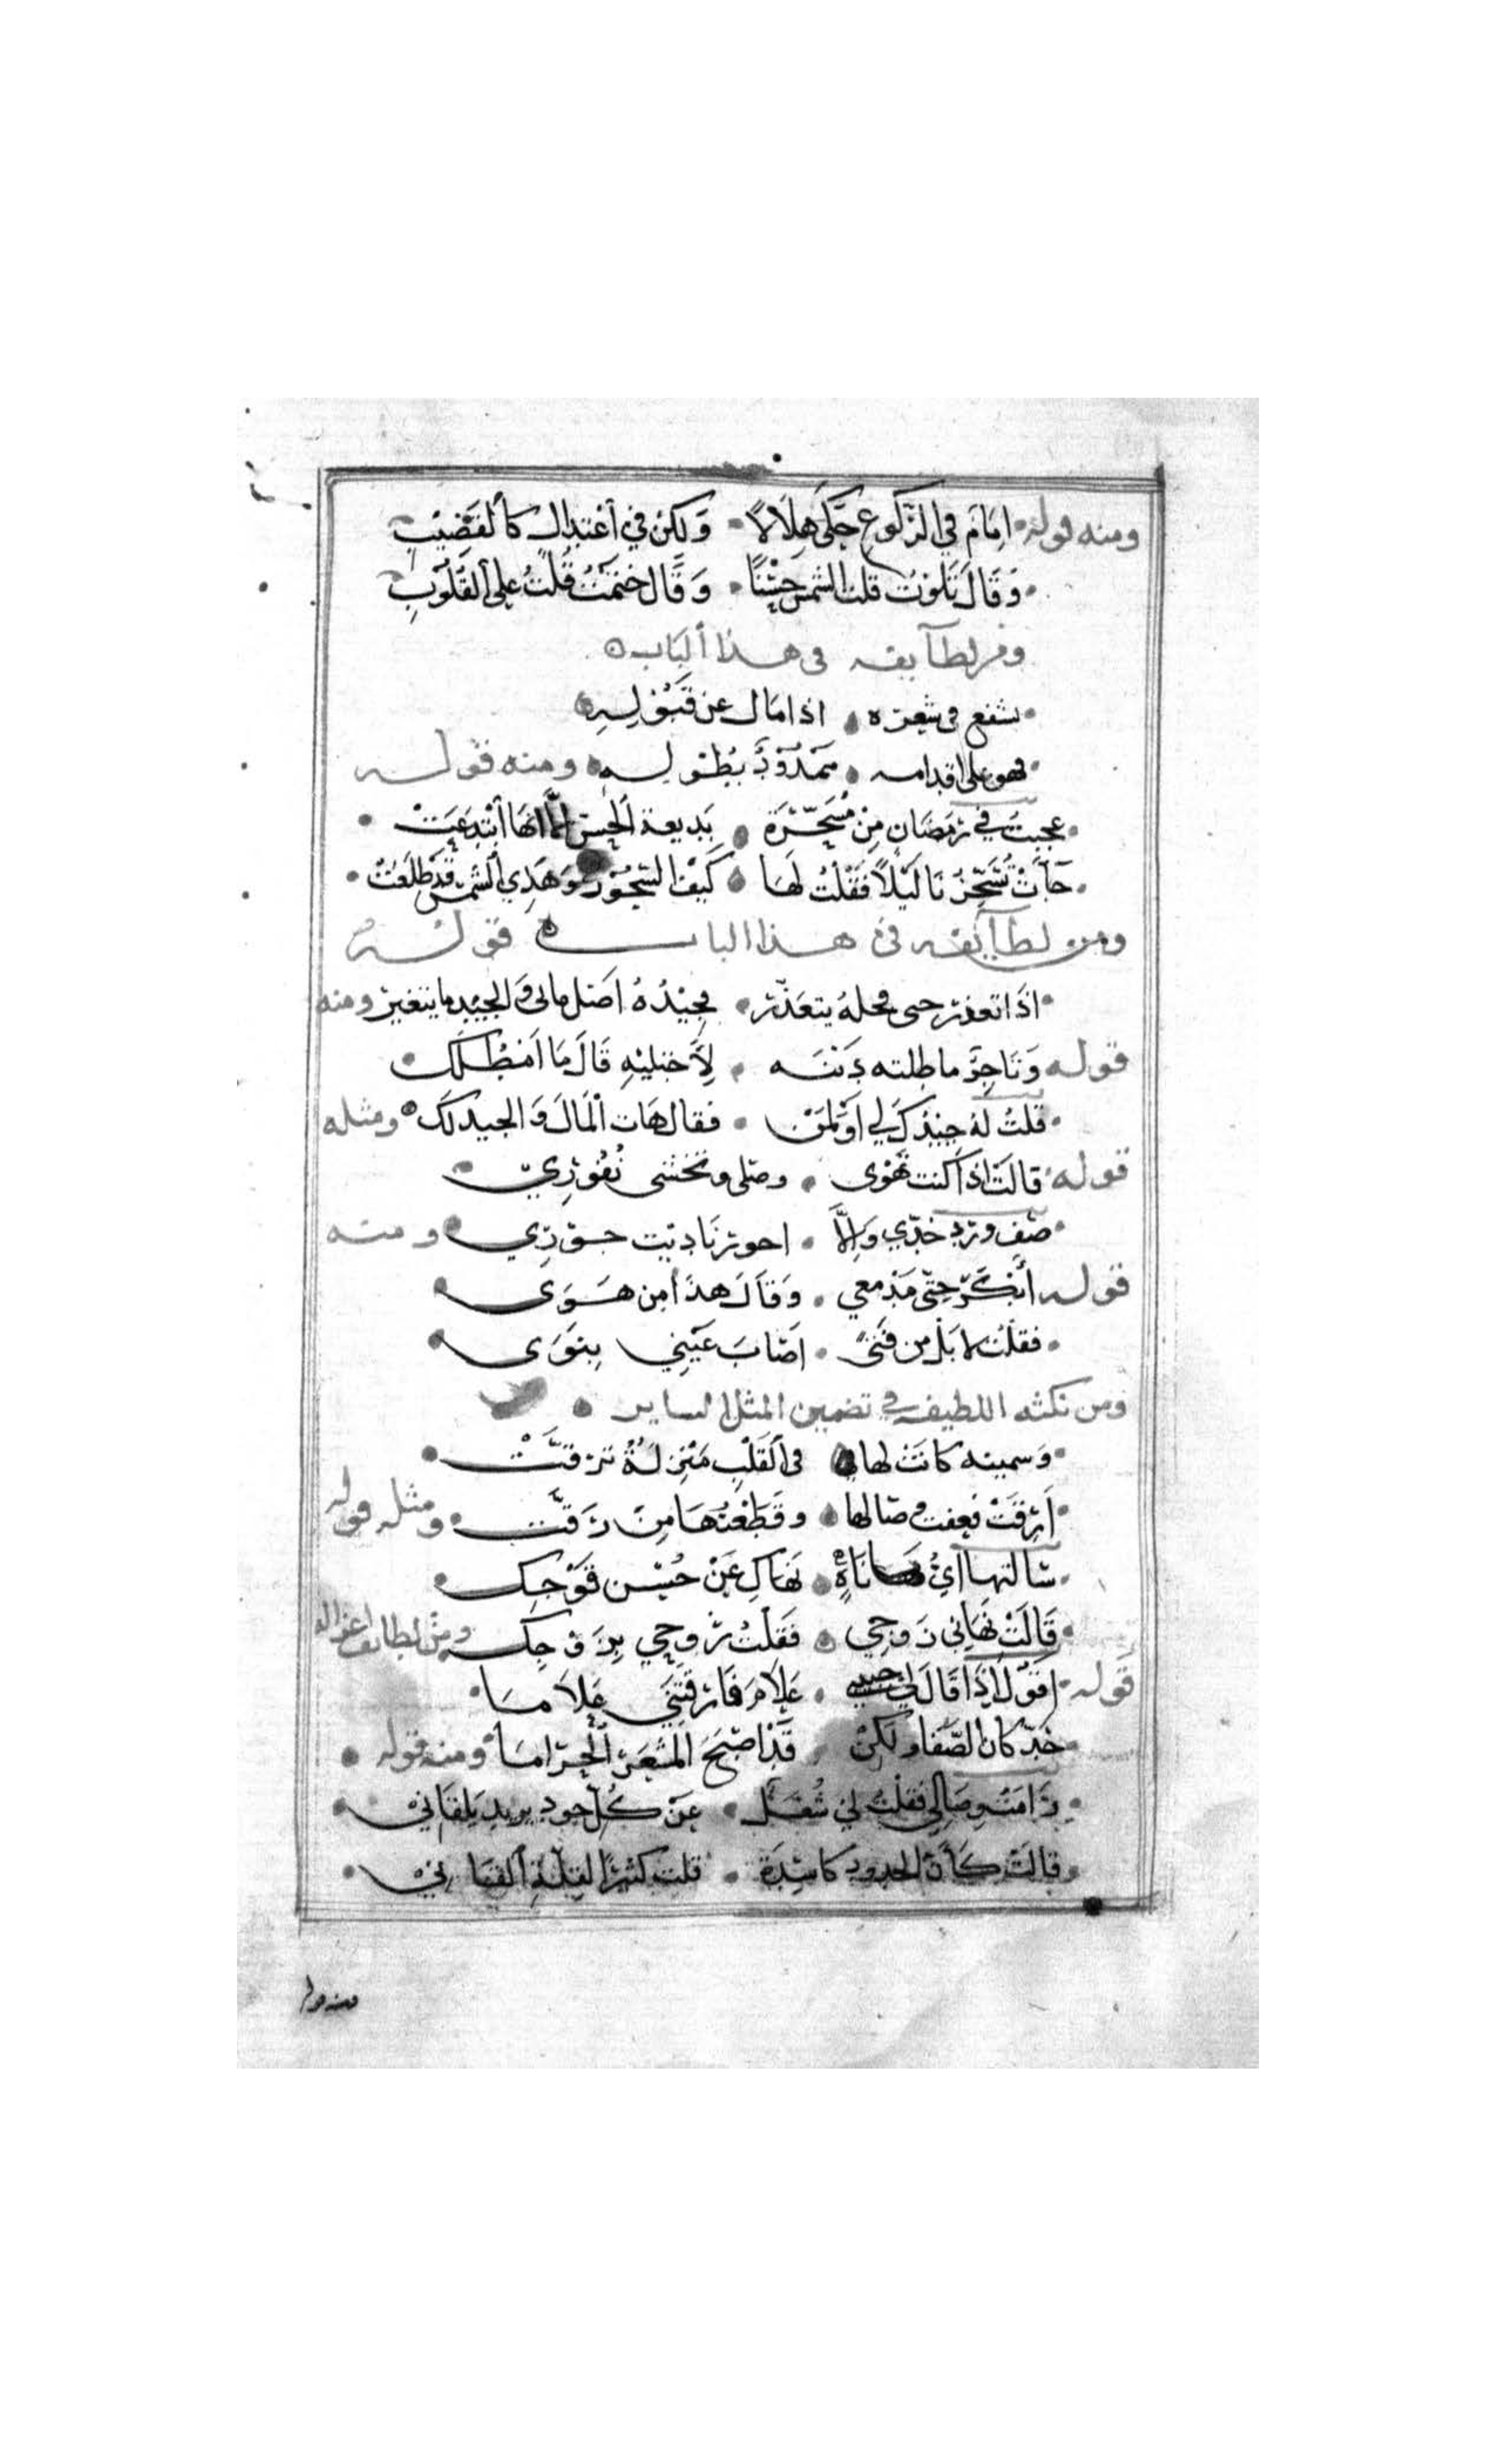 ومنه قوله • اِمَامٌ في الرُّكوعِ حَكَى هِلَالًا • وَلكِنْ في اَعْتِدالٍ كَالْقَضِيْبِ
• وَقَالَ تَلَوْتُ قلت الشمسَ حُسْنًا • وَقَال خَتَمْتُ قُلتُ على القُلُوْبِ
ومن لطآيفه في هذا الباب ه
• تشفع في شعره • اذا مال عن قَبُوْلِهِ
• فهو على اقدامه • مَمْدُوْدٌ بِطُوْلِهِ • ومنه قوله
• عجبتُ في رَمَضَان مِنْ مُسَحِّرَةٍ • بَديعة الحسن إلَّا انها اَبْتَدَعَتْ •
• جآءَتْ تُسَحِّرُنَا لَيْلًا فَقُلْتُ لَهَا • كَيْفَ السَّحُوْرُ وَهَذِي الشمس قَدْ طَلَعَتْ •
ومن لطآيفه في هذا الباب ه قوله
• اذَا تعذر حى فحلهُ يتعَذّر • فجِيْدُهُ اصل مالى والجيد ما يتغير ومنه
قوله وَتَاجِرٍ ماطلته دَينَه • لِأَجتليْهِ قَالَ مَا اَمْطَلَكَ •
• قلتُ لهُ جِيْدُكَ لي اَوْ لمَنْ • فقال هَات الْمَالَ وَالجيد لكَ • ومثله
قوله • قالَتْ اذا كنت تَهْوَى • وصلى وتخشى نُفُوْرِي •
• صِف وَرد خدّي وَإلَّا • اجور ناديت جورِي • ومنه
قوله أنكَرَ حتّى مَدْمعي • وَقَالَ هذَا مِن هَوَى •
• فقلْتُ لا بَلْ من فَتىً • اَصَابَ عَيْنِي بِنَوَى •
ومن نكته اللطيفه في تضمين المثل الساير •
• وَسمينه كانَتْ لها • في القَلْبِ مَنْزِلَةٌ تَرَقَّتْ •
• اَرقَتْ فعِفت وصالها • وقَطَعْتُهَا مِنْ رَقَّتْ • ومثله قوله
• سَالتها اَيُّ نَاهٍ • نَهَاكِ عَنْ حُسْنِ فَوْجِك •
• قَالَتْ نَهَانِي زَوجِي • فَقُلْتُ رُوحِي بِزَوْجِك ومن لطايف اغزاله
قوله • اقوْلُ إِذَا قَالَ لِي حبيبى • عَلَامَ فَارَقْتَنِي عَلامَا •
• خَدٌّ كان الصَّفا ولكِنْ • قَدْ اَصْبَحَ المَشْعَرَ الْحَرَامَا • ومنه قوله •
• رَامَتْ وِصَالِي فقلْتُ لِي شُغْلٌ • عَنْ كُلِّ خود يريد يَلقَاني •
• قالَتْ كَأَنَّ الخدودَ كاسِدَة • قلت كثيرًا لقِلَّةِ الْقَانِي •
ومنه قوله